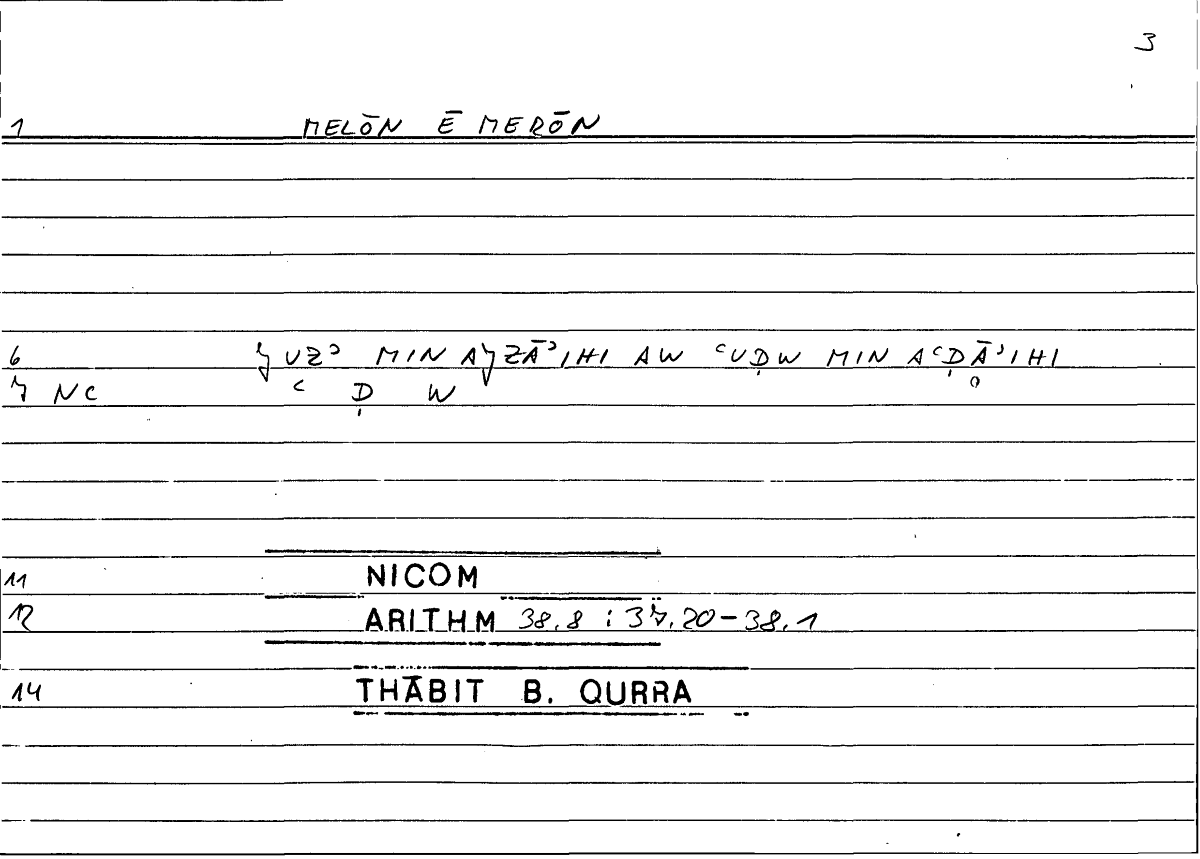 3
1 MELŌN Ē MERŌN
6 ǦUZʾ MIN AǦZĀʾIHI AW ʿUḌW MIN AʿḌĀʾIHI
7 NC ʿ Ḍ W
11 NICOM
12 ARITHM 38.8 : 37.20-38.1
14 THĀBIT B. QURRA